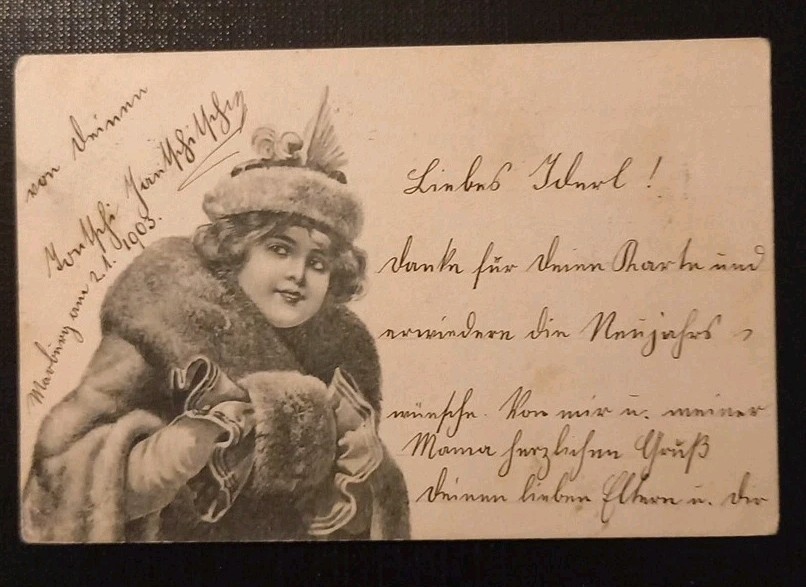 Liebes Iderl!
danke für deine Karte und
erwiedere die Neujahrs-
wünsche. Von mir u. meiner
Mama herzlichen Gruß
deinen lieben Eltern u. dir
von deinem
Marburg am 2.1. 1903.